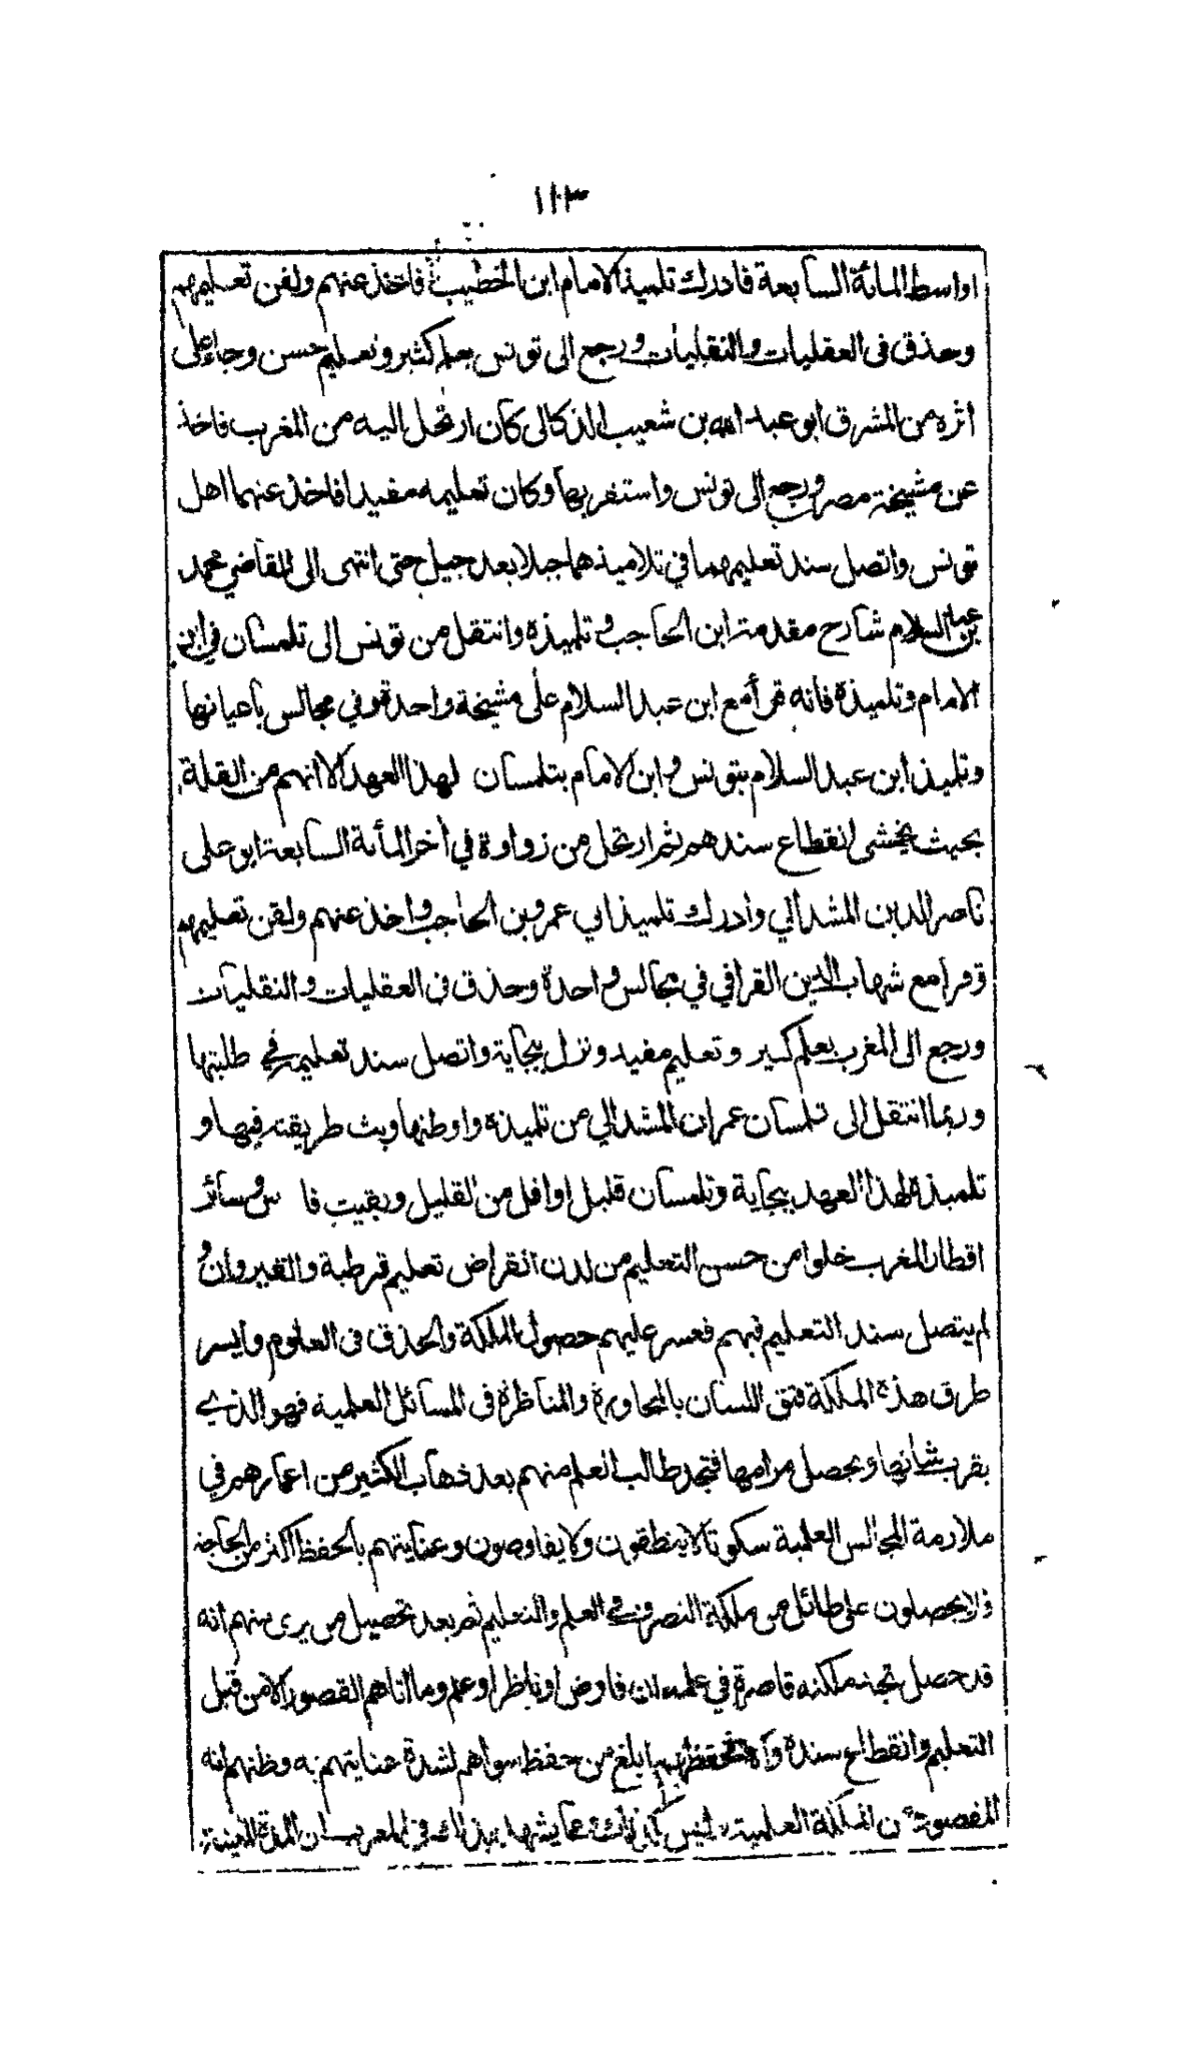 ١١٣
اواسط المائة السابعة فادرك تلميذ الامام ابن الخطيب فاخذ عنهم ولقن تعليمهم
وحذق فى العقليات والنقليات ورجع الى تونس بعلم كثير وتعليم حسن وجاء على
اثره من المشرق ابو عبد الله بن شعيب الذكالى كان ارتحل اليه من المغرب فاخذ
عن مشيخة مصر ورجع الى تونس واستقر بها وكان تعليمه مفيدا فاخذ عنهما اهل
تونس واتصل سند تعليمهما في تلاميذهما جيلا بعد جيل حتى انتهى الى القاضي محمد
بن عبد السلام شارح مقدمة ابن الحاجب وتلميذه وانتقل من تونس الى تلمسان في ابن
الامام وتلميذه فانه قرأ مع ابن عبد السلام على مشيخة واحدة وفي مجالس باعيانها
وتلميذ ابن عبد السلام بتونس وابن الامام بتلمسان لهذا العهد الا انهم من القلة
بحيث يخشى انقطاع سندهم ثم ارتحل من زواوة في أخر المأئة السابعة ابو على
ناصر الدين المشدالي وادرك تلميذ ابي عمرو بن الحاجب واخذ عنهم ولقن تعليمهم
وقرا مع شهاب الدين القرافي في مجالس واحدة وحذق فى العقليات والنقليات
ورجع الى المغرب بعلم كبير وتعليم مفيد ونزل ببجاية واتصل سند تعليمه في طلبتها
وربما انتقل الى تلمسان عمران المشدالي من تلميذه واوطنها وبث طريقته فيها و
تلميذه لهذا العهد ببجاية وتلمسان قليل او اقل من القليل وبقيت فاس وسائر
اقطار المغرب خلوا من حسن التعليم من لدن انقراض تعليم قرطبة والقيروان و
لم يتصل سند التعليم فيهم فعسر عليهم حصول الملكة والحذق فى العلوم وايسر
طرق هذه الملكة فتق اللسان بالمحاورة والمناظرة فى المسائل العلمية فهو الذي
يقرب شانها ويحصل مرامها فتجد طالب العلم منهم بعد ذهاب الكثير من اعمارهم في
ملازمة المجالس العلمية سكوتا لا ينطقون ولا يفاوضون وعنايتهم بالحفظ اكثر من الحاجة
فلا يحصلون على طائل من ملكة التصرف في العلم والتعليم ثم بعد تحصيل من يرى منهم انه
قد حصل تجد ملكته قاصرة في علمه ان فاوض او ناظر او علم وما اتاهم القصور الا من قبل
التعليم وانقطاع سنده والا فحفظهم ابلغ من حفظ سواهم لشدة عنايتهم به وظنهم انه
المقصود من الملكة العلمية وليس كذلك مما يشهد بذلك فى المغرب ان المدة المعينة